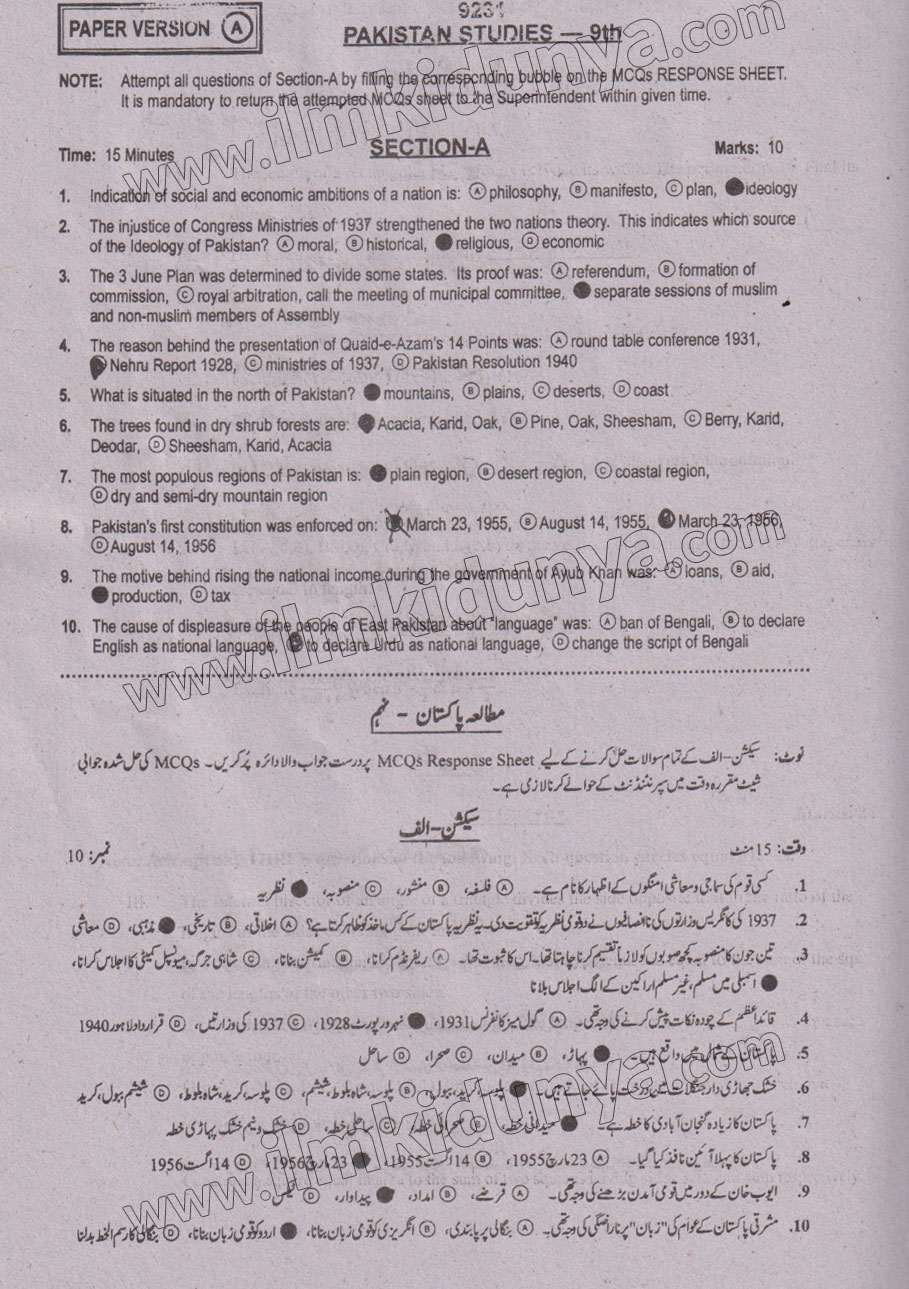 9231
PAPER VERSION A
PAKISTAN STUDIES — 9th
NOTE: Attempt all questions of Section-A by filling the corresponding bubble on the MCQs RESPONSE SHEET.
It is mandatory to return the attempted MCQs sheet to the Superintendent within given time.
Time: 15 Minutes SECTION-A Marks: 10
1. Indication of social and economic ambitions of a nation is: Ⓐ philosophy, Ⓑ manifesto, Ⓒ plan, ● ideology
2. The injustice of Congress Ministries of 1937 strengthened the two nations theory. This indicates which source
of the Ideology of Pakistan? Ⓐ moral, Ⓑ historical, ● religious, Ⓓ economic
3. The 3 June Plan was determined to divide some states. Its proof was: Ⓐ referendum, Ⓑ formation of
commission, Ⓒ royal arbitration, call the meeting of municipal committee, ● separate sessions of muslim
and non-muslim members of Assembly
4. The reason behind the presentation of Quaid-e-Azam's 14 Points was: Ⓐ round table conference 1931,
● Nehru Report 1928, Ⓒ ministries of 1937, Ⓓ Pakistan Resolution 1940
5. What is situated in the north of Pakistan? ● mountains, Ⓑ plains, Ⓒ deserts, Ⓓ coast
6. The trees found in dry shrub forests are: ● Acacia, Karid, Oak, Ⓑ Pine, Oak, Sheesham, Ⓒ Berry, Karid,
Deodar, Ⓓ Sheesham, Karid, Acacia
7. The most populous regions of Pakistan is: ● plain region, Ⓑ desert region, Ⓒ coastal region,
Ⓓ dry and semi-dry mountain region
8. Pakistan's first constitution was enforced on: ● March 23, 1955, Ⓑ August 14, 1955, ● March 23, 1956,
Ⓓ August 14, 1956
9. The motive behind rising the national income during the government of Ayub Khan was: Ⓐ loans, Ⓑ aid,
● production, Ⓓ tax
10. The cause of displeasure of the people of East Pakistan about "language" was: Ⓐ ban of Bengali, Ⓑ to declare
English as national language, ● to declare Urdu as national language, Ⓓ change the script of Bengali
مطالعہ پاکستان - نہم
نوٹ: سیکشن-الف کے تمام سوالات حل کرنے کے لیے MCQs Response Sheet پر درست جواب والا دائرہ پُر کریں۔ MCQs کی حل شدہ جوابی
شیٹ مقررہ وقت میں سپرنٹنڈنٹ کے حوالے کرنا لازمی ہے۔
سیکشن-الف
وقت: 15 منٹ نمبر: 10
1. کسی قوم کی سماجی و معاشی امنگوں کے اظہار کا نام ہے۔ Ⓐ فلسفہ، Ⓑ منشور، Ⓒ منصوبہ، ● نظریہ
2. 1937 کی کانگریس وزارتوں کی ناانصافیوں نے دو قومی نظریہ کو تقویت دی۔ یہ نظریہ پاکستان کے کس ماخذ کو ظاہر کرتا ہے؟ Ⓐ اخلاقی، Ⓑ تاریخی، ● مذہبی، Ⓓ معاشی
3. تین جون کا منصوبہ کچھ صوبوں کو لازماً تقسیم کرنا چاہتا تھا۔ اس کا ثبوت تھا۔ Ⓐ ریفرنڈم کرانا، Ⓑ کمیشن بنانا، Ⓒ شاہی جرگہ، میونسپل کمیٹی کا اجلاس کرانا،
● اسمبلی میں مسلم، غیر مسلم اراکین کے الگ اجلاس بلانا
4. قائداعظم کے چودہ نکات پیش کرنے کی وجہ تھی۔ Ⓐ گول میز کانفرنس 1931، ● نہرو رپورٹ 1928، Ⓒ 1937 کی وزارتیں، Ⓓ قرارداد لاہور 1940
5. پاکستان کے شمال میں واقع ہیں۔ ● پہاڑ، Ⓑ میدان، Ⓒ صحرا، Ⓓ ساحل
6. خشک جھاڑی دار جنگلات میں درخت پائے جاتے ہیں۔ ● پلوسہ، کرید، ببول، Ⓑ پلوسہ، شاہ بلوط، شیشم، Ⓒ پلوسہ، کرید، شاہ بلوط، Ⓓ شیشم، ببول، کرید
7. پاکستان کا زیادہ گنجان آبادی کا خطہ ہے۔ ● میدانی خطہ، Ⓑ صحرائی خطہ، Ⓒ ساحلی خطہ، Ⓓ خشک و نیم خشک پہاڑی خطہ
8. پاکستان کا پہلا آئین نافذ کیا گیا۔ Ⓐ 23 مارچ 1955، Ⓑ 14 اگست 1955، ● 23 مارچ 1956، Ⓓ 14 اگست 1956
9. ایوب خان کے دور میں قومی آمدن بڑھنے کی وجہ تھی۔ Ⓐ قرضے، Ⓑ امداد، ● پیداوار، Ⓓ ٹیکس
10. مشرقی پاکستان کے عوام کی "زبان" پر ناراضگی کی وجہ تھی۔ Ⓐ بنگالی پر پابندی، Ⓑ انگریزی کو قومی زبان بنانا، ● اردو کو قومی زبان بنانا، Ⓓ بنگالی کا رسم الخط بدلنا
www.ilmkidunya.com
www.ilmkidunya.com
www.ilmkidunya.com